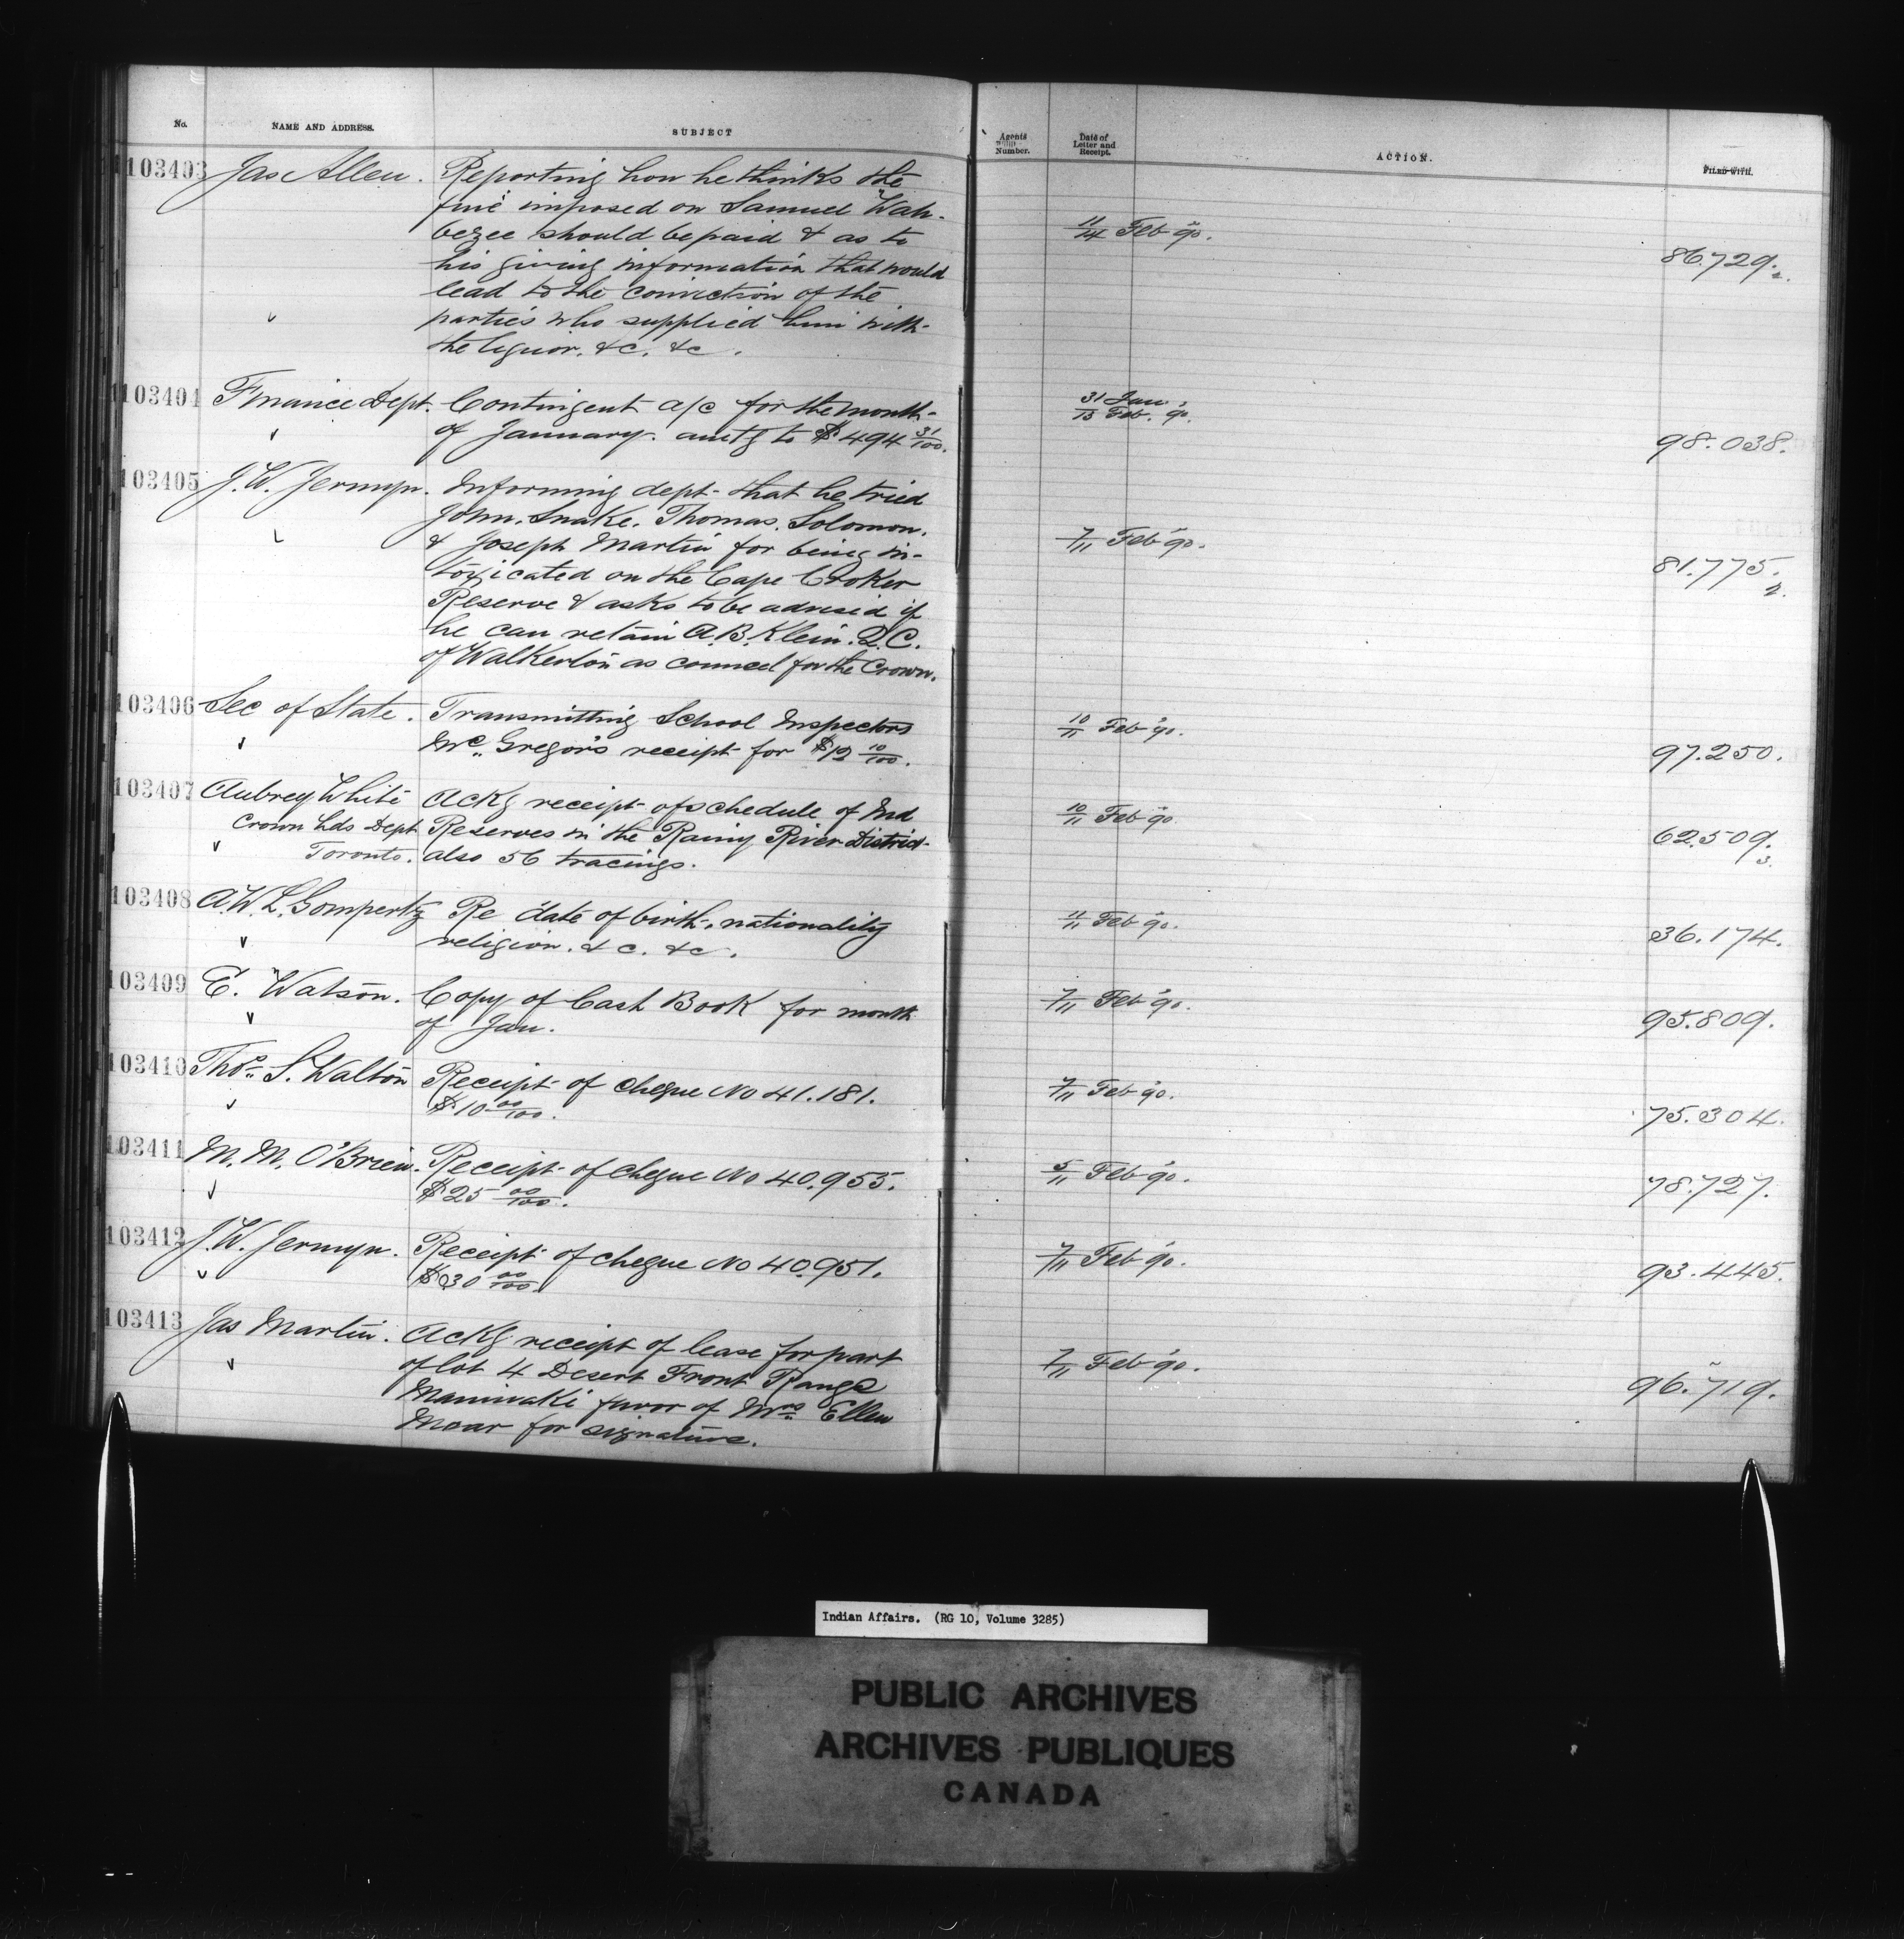 No. NAME AND ADDRESS. SUBJECT Agents Number. Date of Letter and Receipt. ACTION. FILED WITH.
103403 Jas Allen. Reporting how he thinks the
fine imposed on Samuel Wah-
bezee should be paid & as to 11/14 Feb '90.
his giving information that would 86.729. 2.
lead to the conviction of the
parties who supplied him with
the liquor. &c. &c.
103404 Finance Dept. Contingent a/c for the month 31 Jan
of January. amtg to $494 31/100. 13 Feb. '90. 98.038.
103405 J.W. Jermyn. Informing dept that he tried
John. Snake. Thomas. Solomon.
& Joseph Martin for being in- 7/11 Feb '90.
toxicated on the Cape Croker 81.775. 2.
Reserve & asks to be advised if
he can retain A.B. Klein. Q.C.
of Walkerton as councel for the Crown.
103406 Sec of State. Transmitting School Inspectors 10/11 Feb '90.
Mc. Gregor's receipt for $12 10/100. 97.250.
103407 Aubrey White Ackg receipt of schedule of Ind 10/11 Feb '90.
Crown Lds Dept Reserves in the Rainy River District 62.509. 3.
Toronto. also 56 tracings.
103408 A.W.L. Gompertz Re date of birth, nationality 11/11 Feb '90.
religion. &c. &c. 36.174.
103409 E. Watson. Copy of Cash Book for month 7/11 Feb '90.
of Jan. 95.809.
103410 Thos. S. Walton Receipt of cheque No 41.181. 7/11 Feb '90.
$10 00/100. 75.304.
103411 M. M. O'Brien. Receipt of cheque No 40.955. 5/11 Feb '90.
$25 00/100. 78.727.
103412 J.W. Jermyn. Receipt of cheque No 40.951. 7/11 Feb '90.
$30 00/100. 93.445.
103413 Jas Martin. Ackg receipt of lease for part 7/11 Feb '90.
of lot 4 Desert Front Range 96.719.
Maniwaki favor of Mrs. Ellen
Moar for signature.
Indian Affairs. (RG 10, Volume 3285)
PUBLIC ARCHIVES
ARCHIVES PUBLIQUES
CANADA